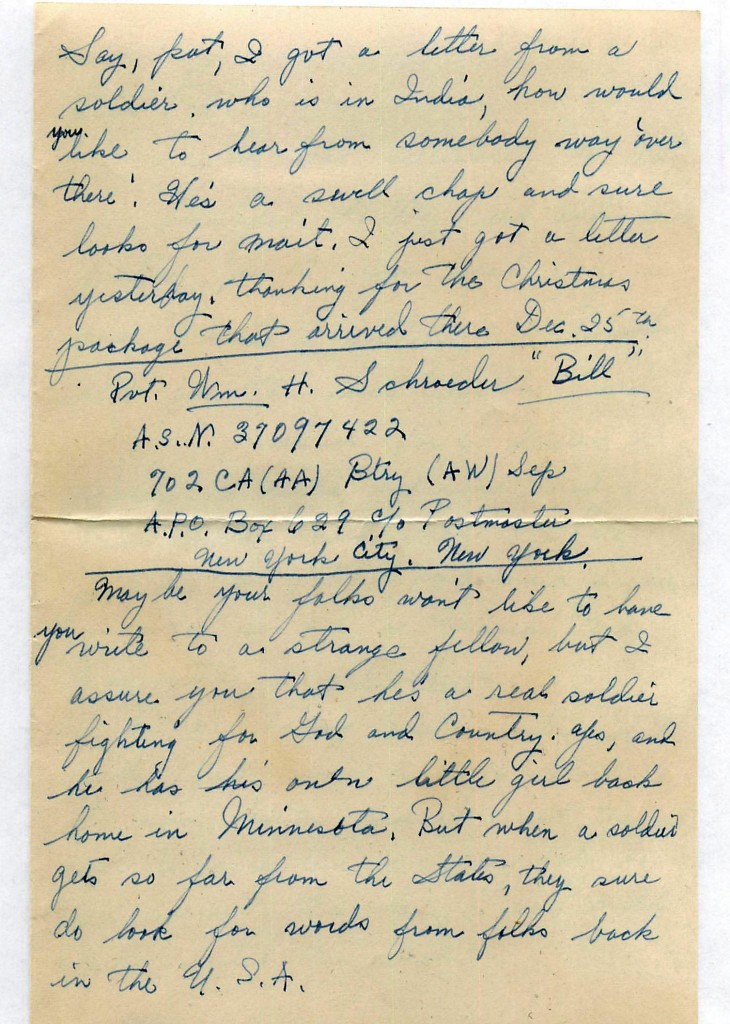 Say, pat, I got a letter from a
soldier, who is in India, how would
you like to hear from somebody way 'over
there'. He's a swell chap and sure
looks for mail. I just got a letter
yesterday, thanking for the Christmas
package that arrived there Dec. 25th.
Pvt. Wm. H. Schroeder "Bill",
A.S.N. 37097422
702 CA (AA) Btry (AW) Sep
A.P.O. Box 629 c/o Postmaster
New York City. New York.
May be your folks won't like to have
you write to a strange fellow, but I
assure you that he's a real soldier
fighting for God and Country. Yes, and
he has his own little girl back
home in Minnesota. But when a soldier
gets so far from the States, they sure
do look for words from folks back
in the U. S. A.